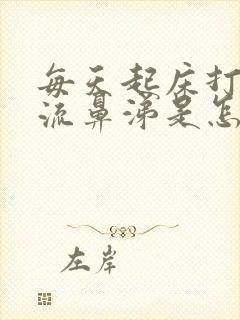 每天起床打
流鼻涕是怎
左岸